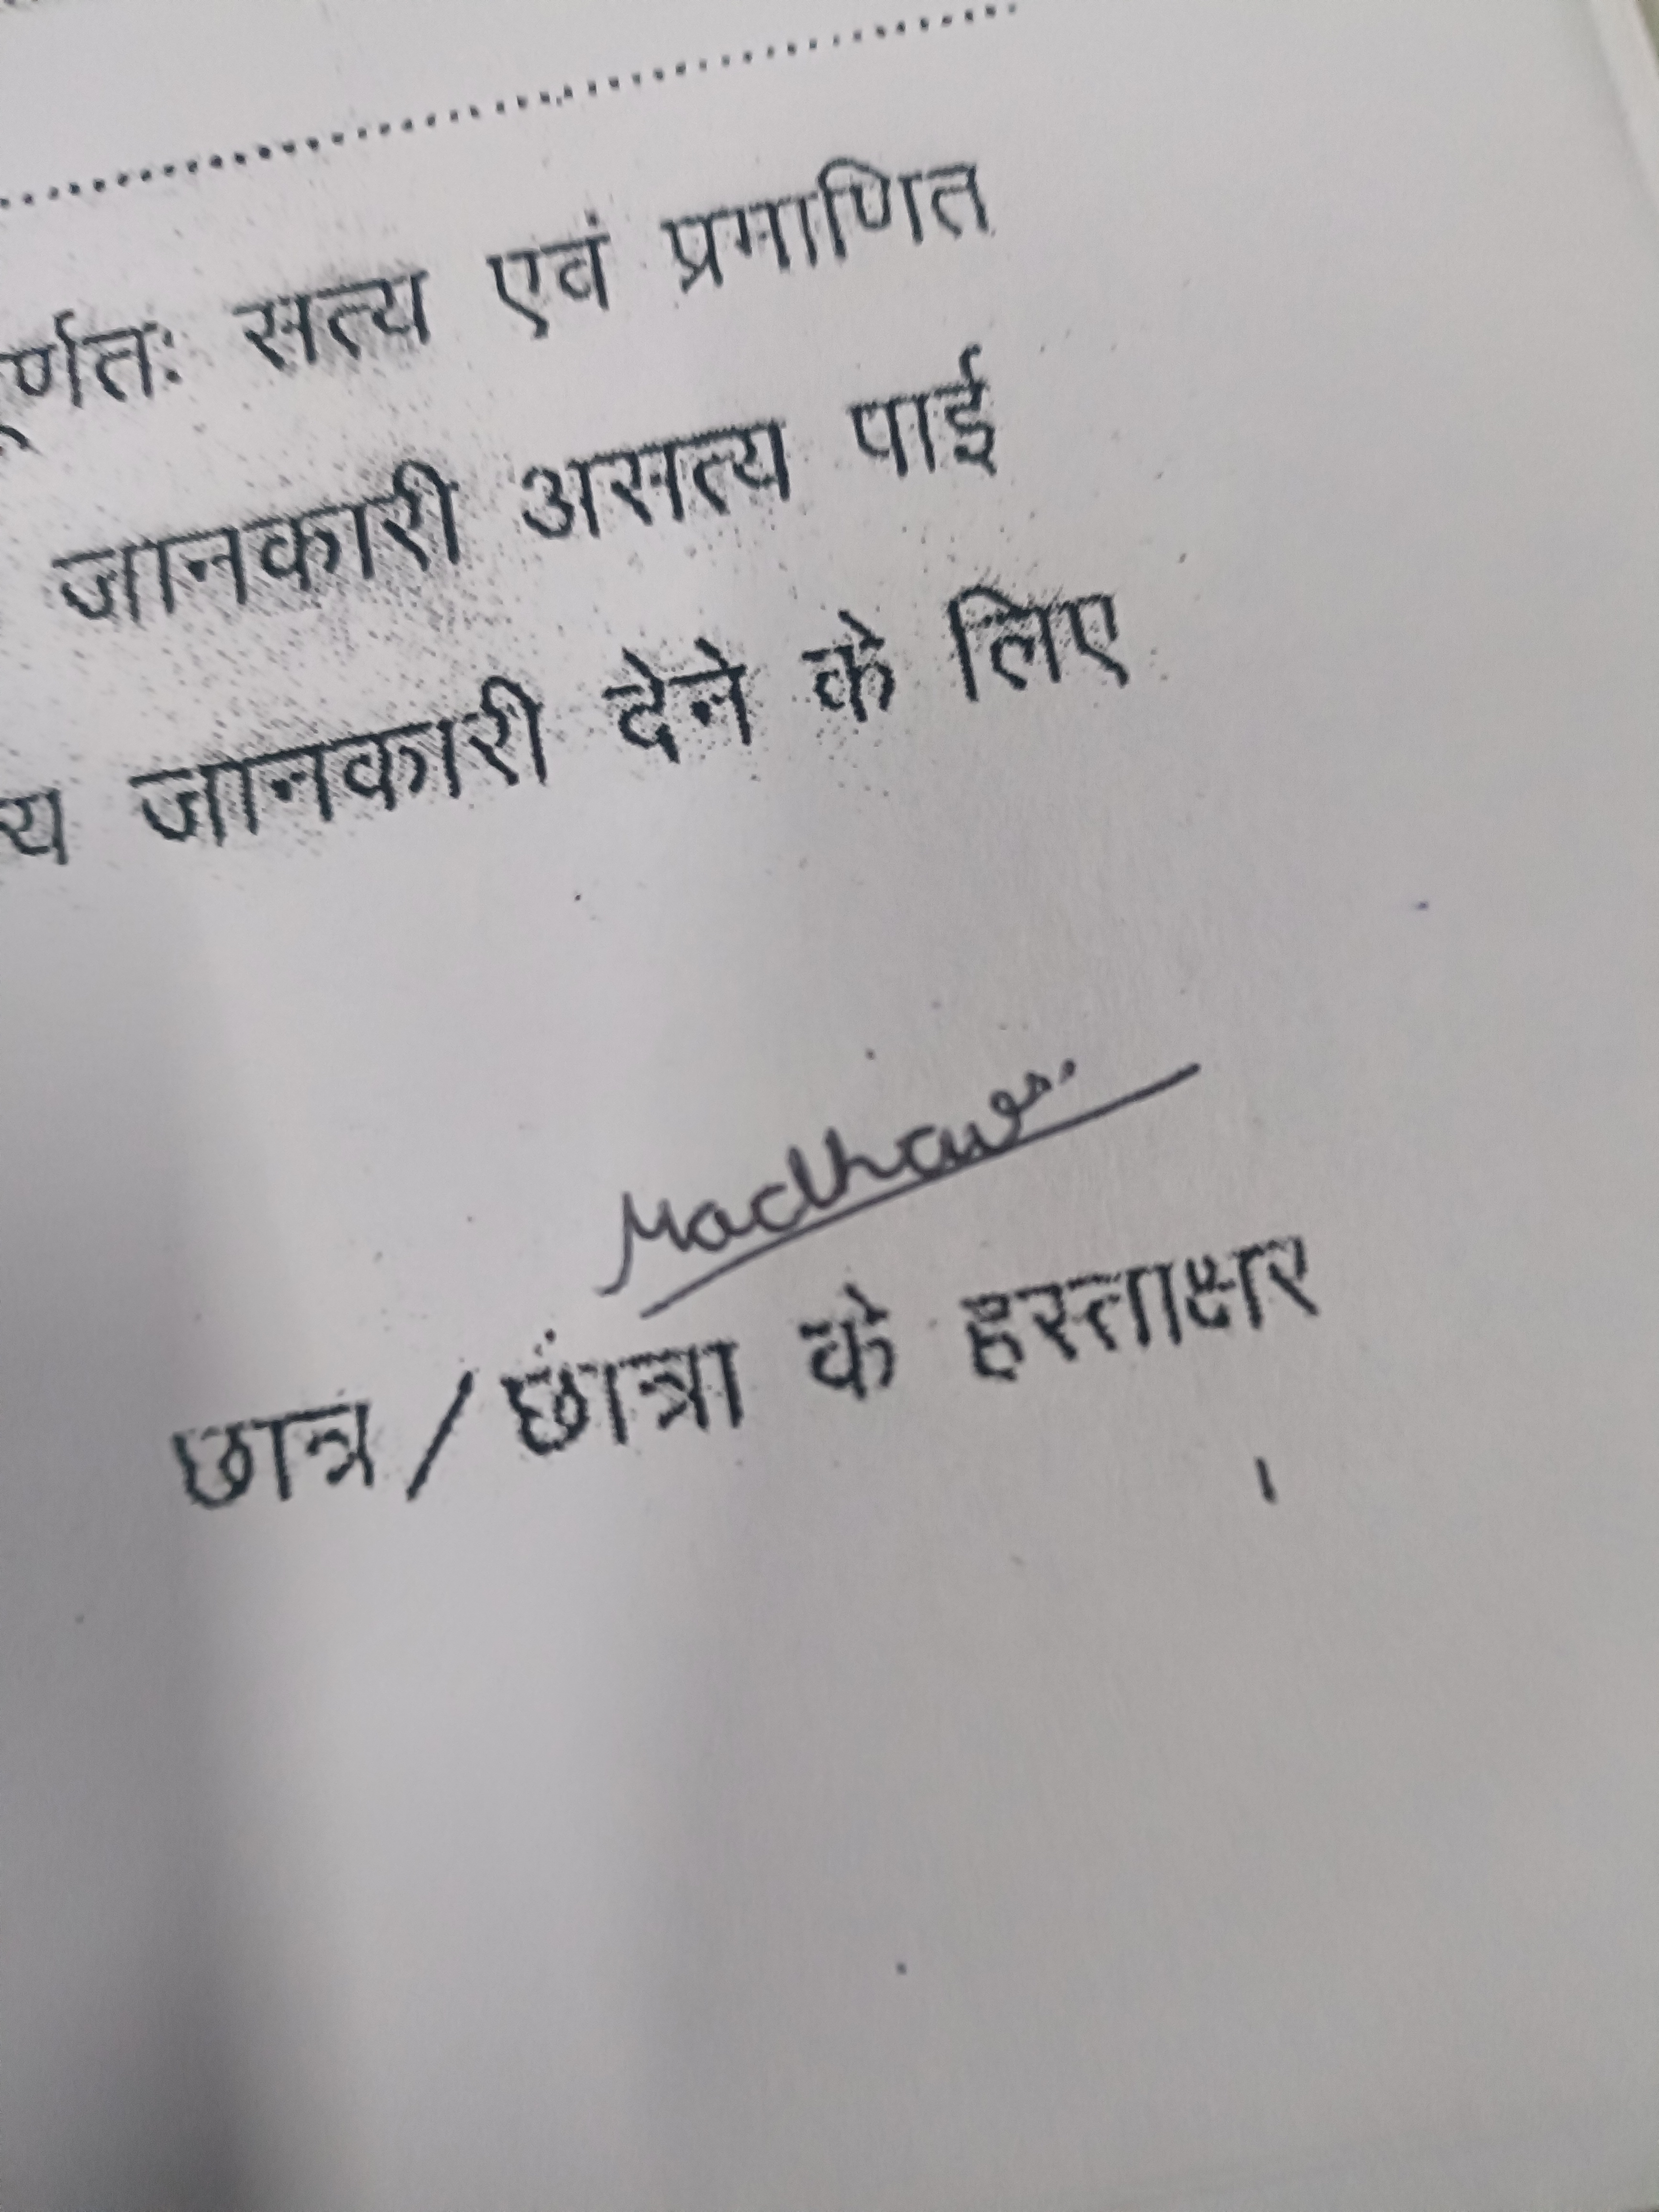 सत्य एवं प्रमाणित
जानकारी असत्य पाई
जानकारी देने के लिए
Madhav
छात्र/छात्रा के हस्ताक्षर